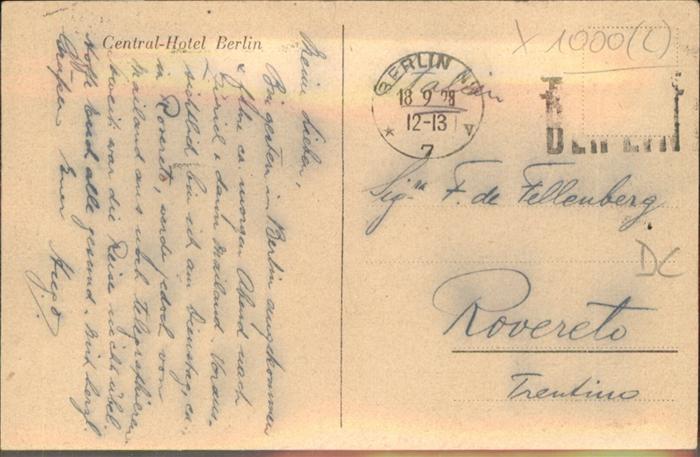 Central-Hotel Berlin
Meine Lieben,
Bin gestern in Berlin angekommen
& fahre ca. morgen Abend nach
Zürich & dann Mailand. Voraus-
sichtlich bin ich am Dienstag ca.
in Rovereto, werde jedoch von
Mailand aus noch telegraphieren.
Soweit war die Reise nicht übel.
Hoffe Euch alle gesund. Mit herzl.
Grüßen Euer Hugo
BERLIN N
18 9 28
12-13 V
7
Italien
BERLIN
X 1000 (L)
Sig. F. de Fellenberg
DC
Rovereto
Trentino